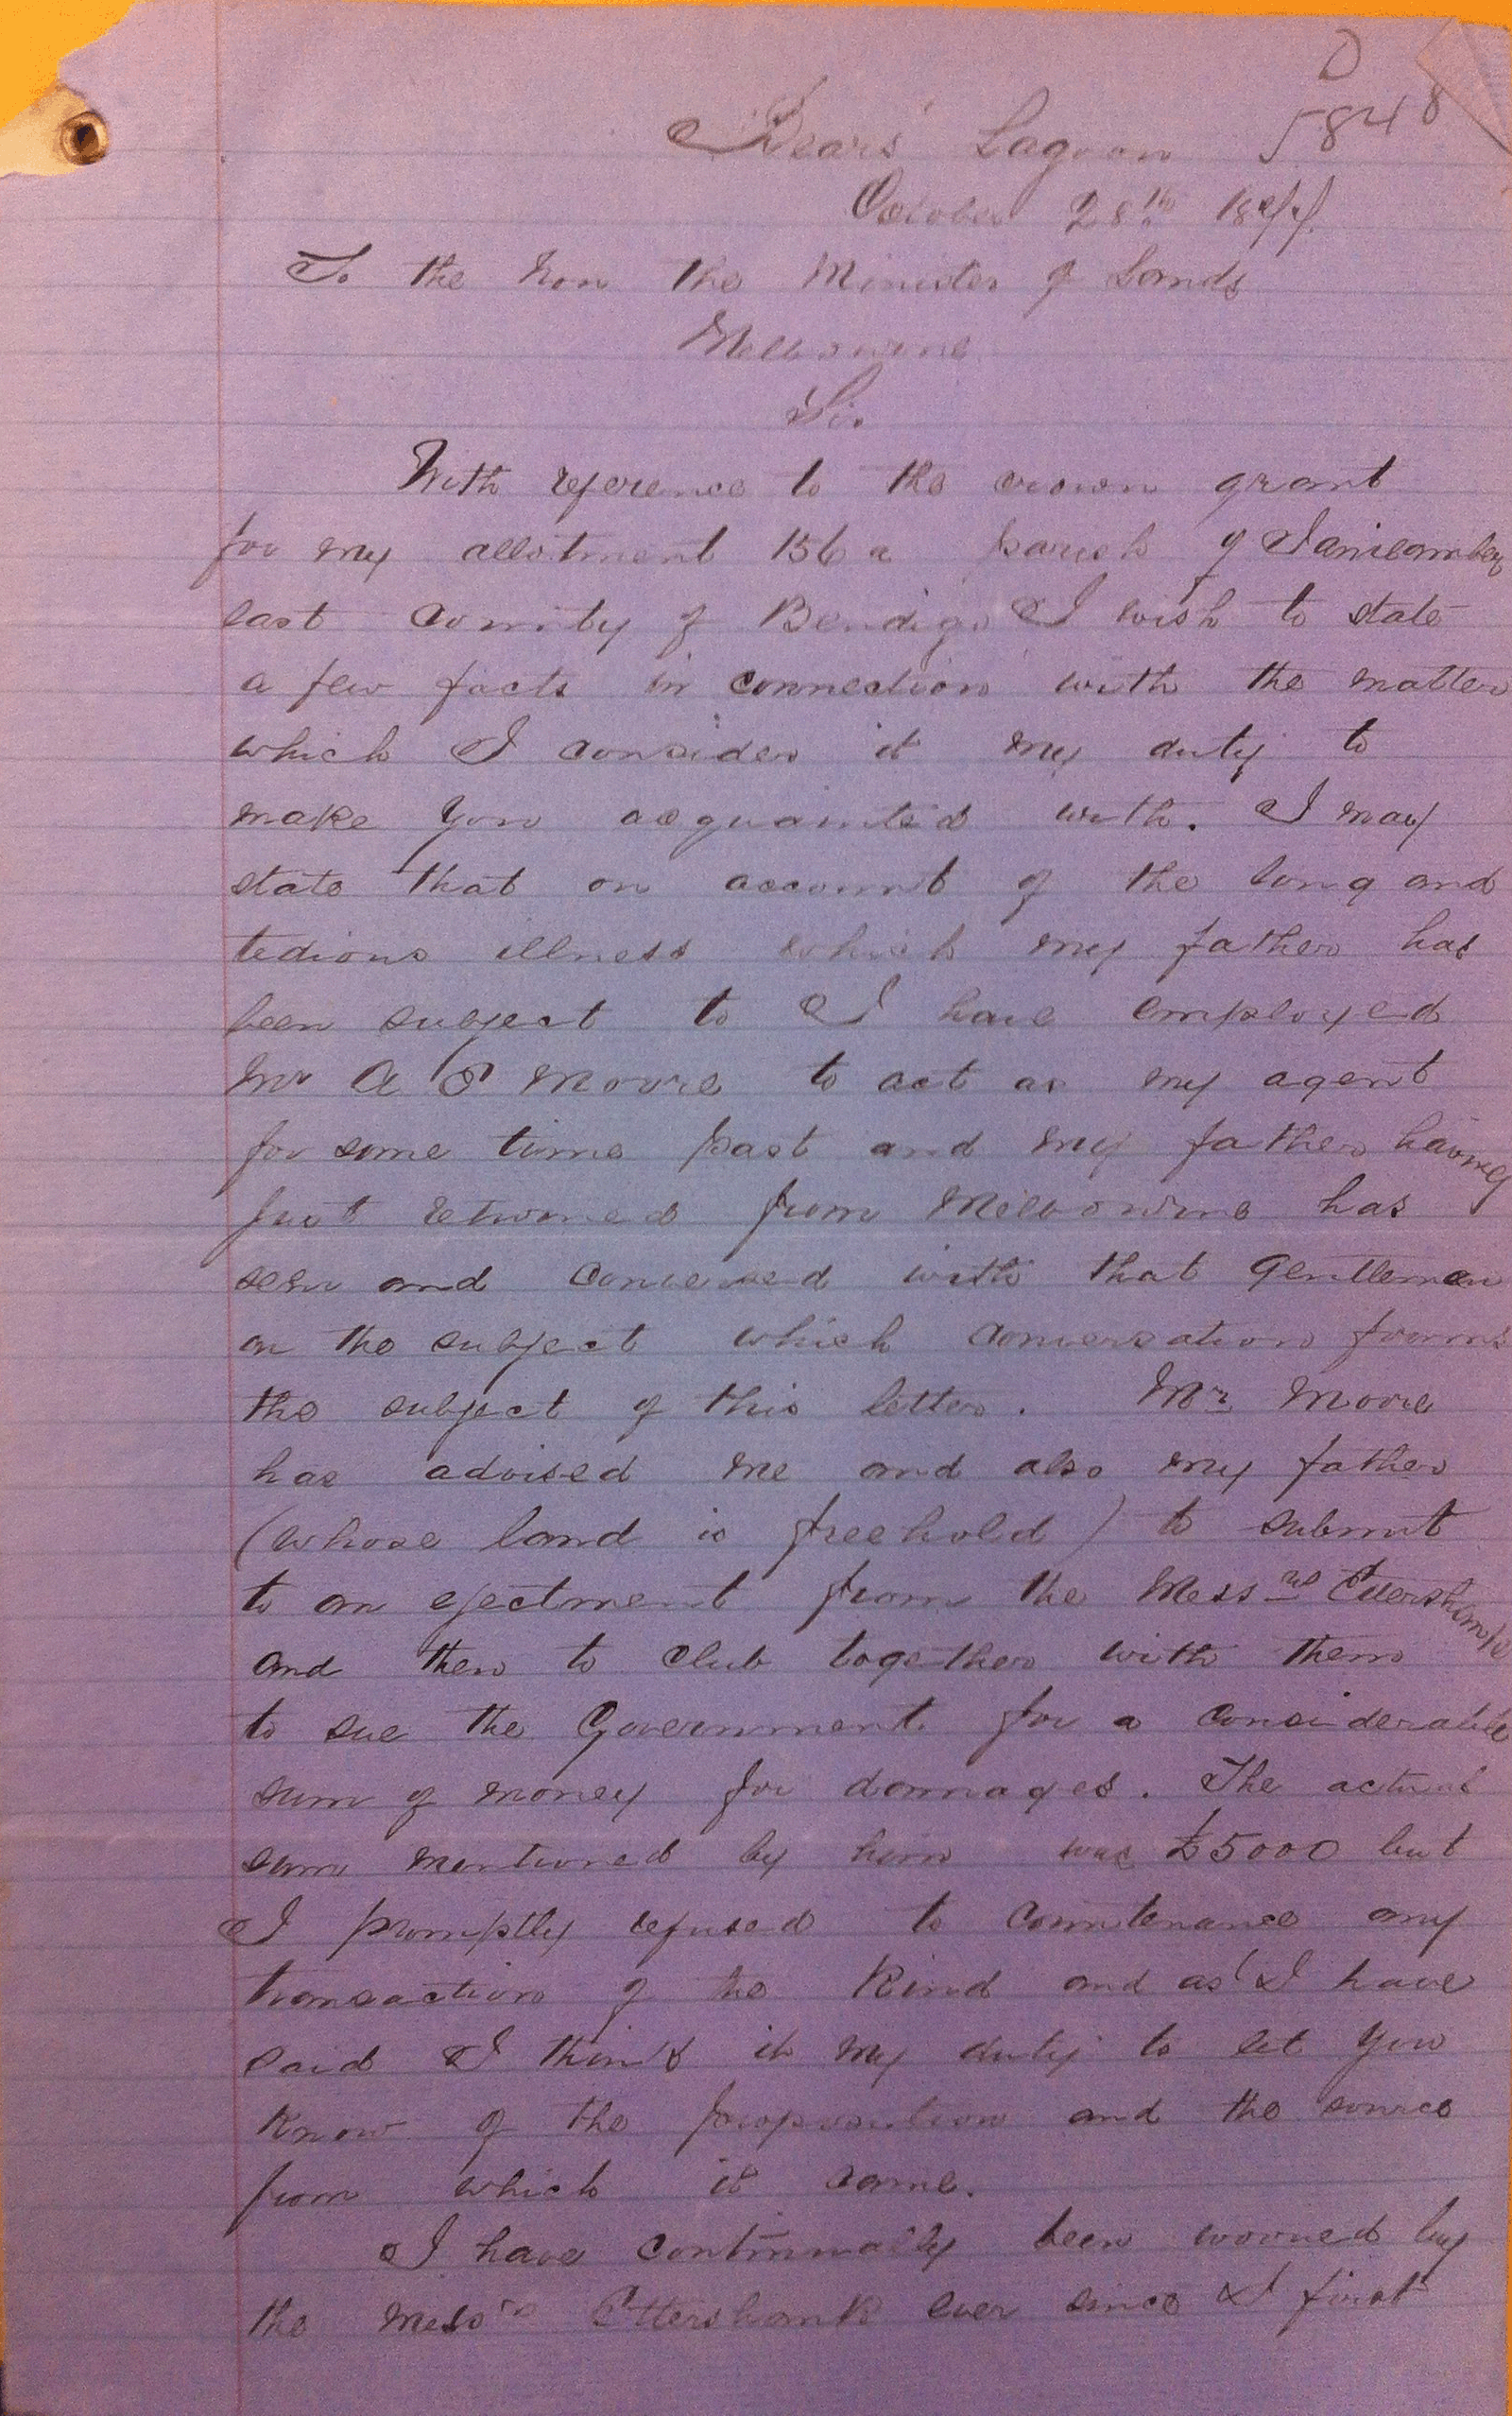 D
5848
Dears' Lagoon
October 28th 1877.
To the Hon the Minister of Lands
Melbourne
Sir
With reference to the crown grant
for my allotment 156a parish of
East County of Bendigo I wish to state
a few facts in connection with the matter
which I consider it my duty to
make you acquainted with. I may
state that on account of the long and
tedious illness which my father has
been subject to I have employed
Mr A P Moore to act as my agent
for some time past and my father having
just returned from Melbourne has
seen and conversed with that Gentleman
on the subject which conversation forms
the subject of this letter. Mr Moore
has advised me and also my father
(whose land is freehold) to submit
to an ejectment from the Messrs Ettershank
and then to club together with them
to sue the Government for a considerable
sum of money for damages. The actual
sum mentioned by him was £5000 but
I promptly refused to countenance any
transaction of the kind and as I have
said I think it my duty to let you
know of the proposition and the source
from which it came.
I have continually been worried by
the Messrs Ettershank ever since I first